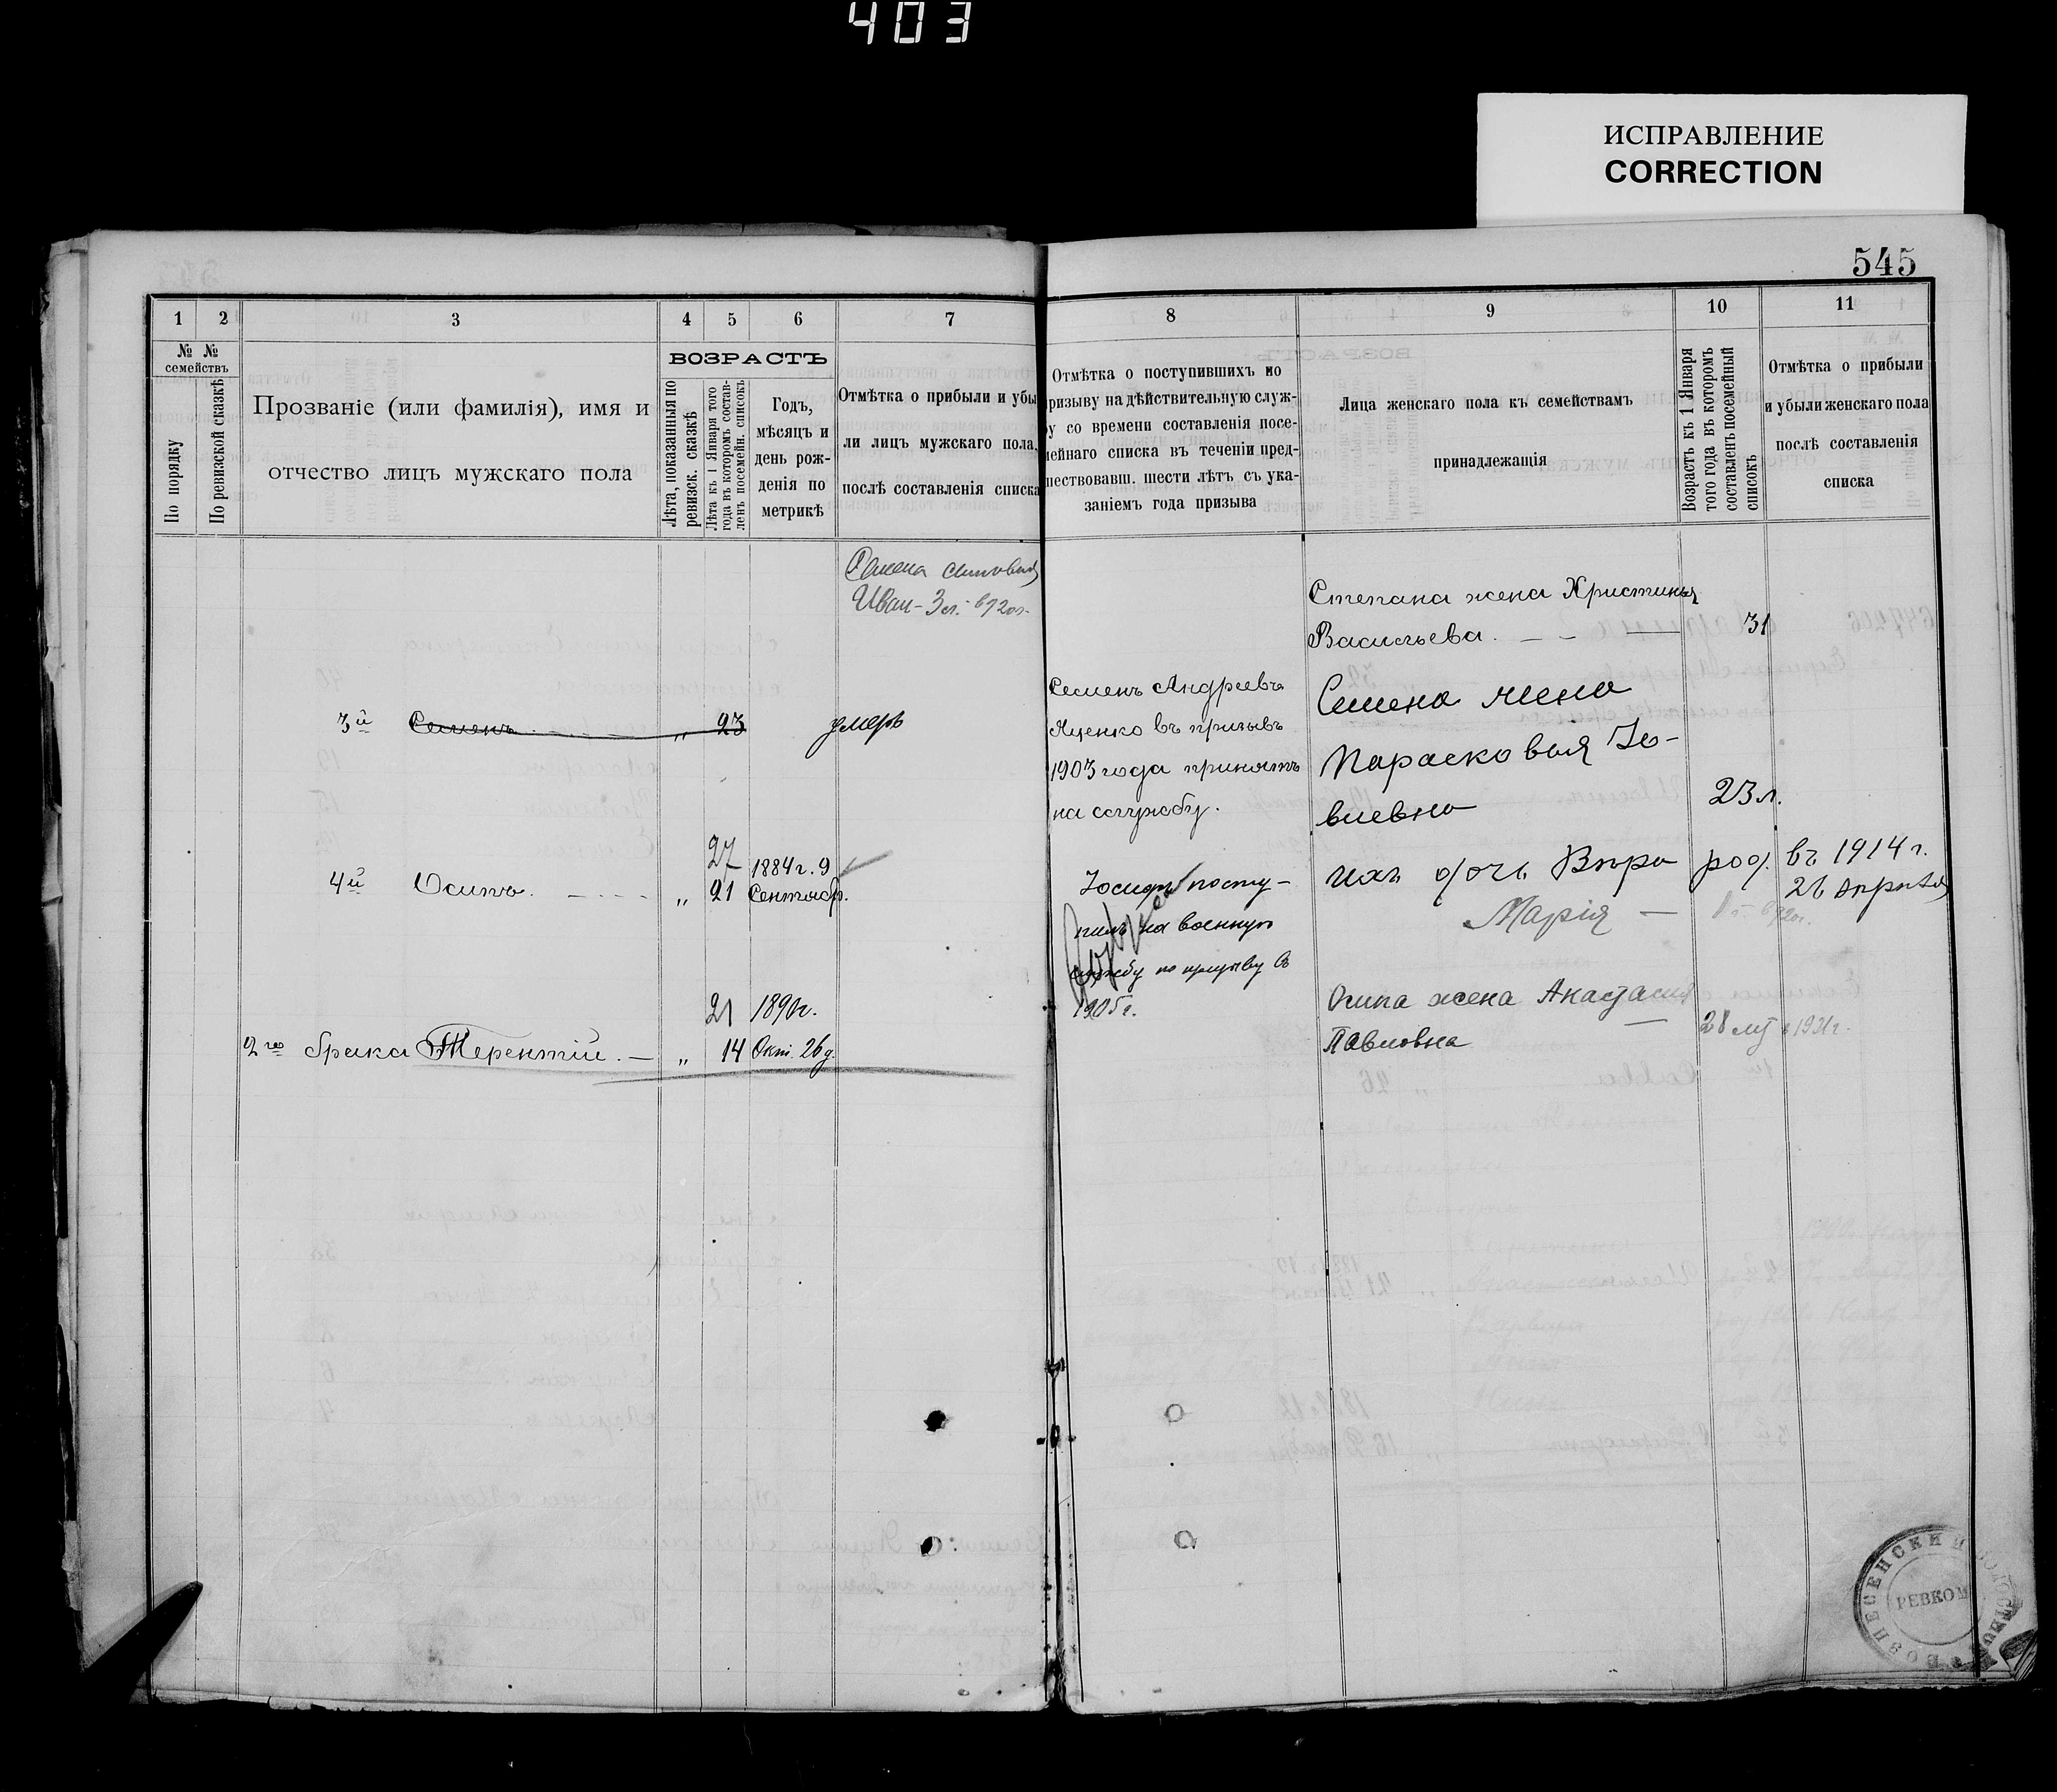 403
ИСПРАВЛЕНИЕ
CORRECTION
545
1 2 3 4 5 6 7
№ № семействъ
По порядку
По ревизской сказкѣ
Прозваніе (или фамилія), имя и
отчество лицъ мужскаго пола
ВОЗРАСТЪ
Лѣта, показанныя по
ревизск. сказкѣ
Лѣта къ 1 Января того
года въ которомъ состав-
ленъ посемейн. списокъ
Годъ,
мѣсяцъ и
день рож-
денія по
метрикѣ
Отмѣтка о прибыли и убы
ли лицъ мужскаго пола,
послѣ составленія списка
Семена сыновья
Иван - 3 л. - в 920г.
3й Семенъ " 23 умеръ
27 1884 г. 9
4й Осипъ. " 21 Сентябр.
21 1890г.
2го брака Терентій. — " 14 Окт. 26 д.
8 9 10 11
Отмѣтка о поступившихъ по
ризыву на дѣйствительную служ-
у со времени составленія посе-
мейнаго списка въ теченіи пред-
шествовавш. шести лѣтъ съ ука-
заніемъ года призыва
Лица женскаго пола къ семействамъ
принадлежащія
Возрастъ къ 1 Января
того года въ которомъ
составленъ посемейный
списокъ
Отмѣтка о прибыли
и убыли женскаго пола
послѣ составленія
списка
Семенъ Андреевъ
Яценко въ призывъ
1903 года принятъ
на службу.
Іосифъ посту-
пилъ на военную
службу по призыву въ
1905 г.
Степана жена Христинья
Васильева. — — — 31
Семена жена
Парасковья
виевна 23 л.
ихъ дочь Вѣра род. въ 1914 г.
26 Апрѣля
Марія — в 920г.
Осипа жена Анастасия
Павловна — 28 лѣт в 1921г.
ВОЗНЕСЕНСКИЙ
РЕВКОМ